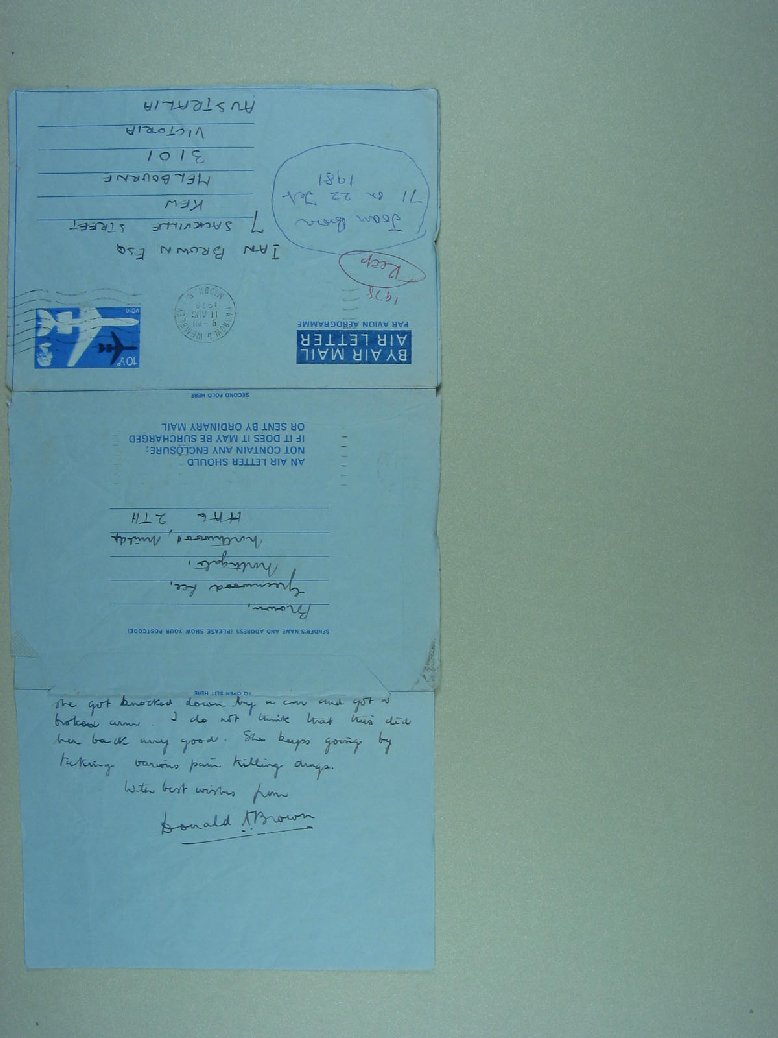 AUSTRALIA
VICTORIA
3101
MELBOURNE
KEW
7 SACKVILLE STREET
IAN BROWN ESQ
Joan Brown
71 on 22 Feb
1981
Recp
1978
HARROW & WEMBLEY
11 AUG
1978
MDDX
10½p
BY AIR MAIL
AIR LETTER
PAR AVION AEROGRAMME
SECOND FOLD HERE
AN AIR LETTER SHOULD
NOT CONTAIN ANY ENCLOSURE;
IF IT DOES IT MAY BE SURCHARGED
OR SENT BY ORDINARY MAIL
SENDER'S NAME AND ADDRESS (PLEASE SHOW YOUR POSTCODE)
Brown,
Greenwood Lee,
Northgate,
Northwood, Middx
HA6 2TH
TO OPEN SLIT HERE
she got knocked down by a car and got a
broken arm. I do not think that this did
her back any good. She keeps going by
taking various pain killing drugs.
With best wishes from
Donald A Brown